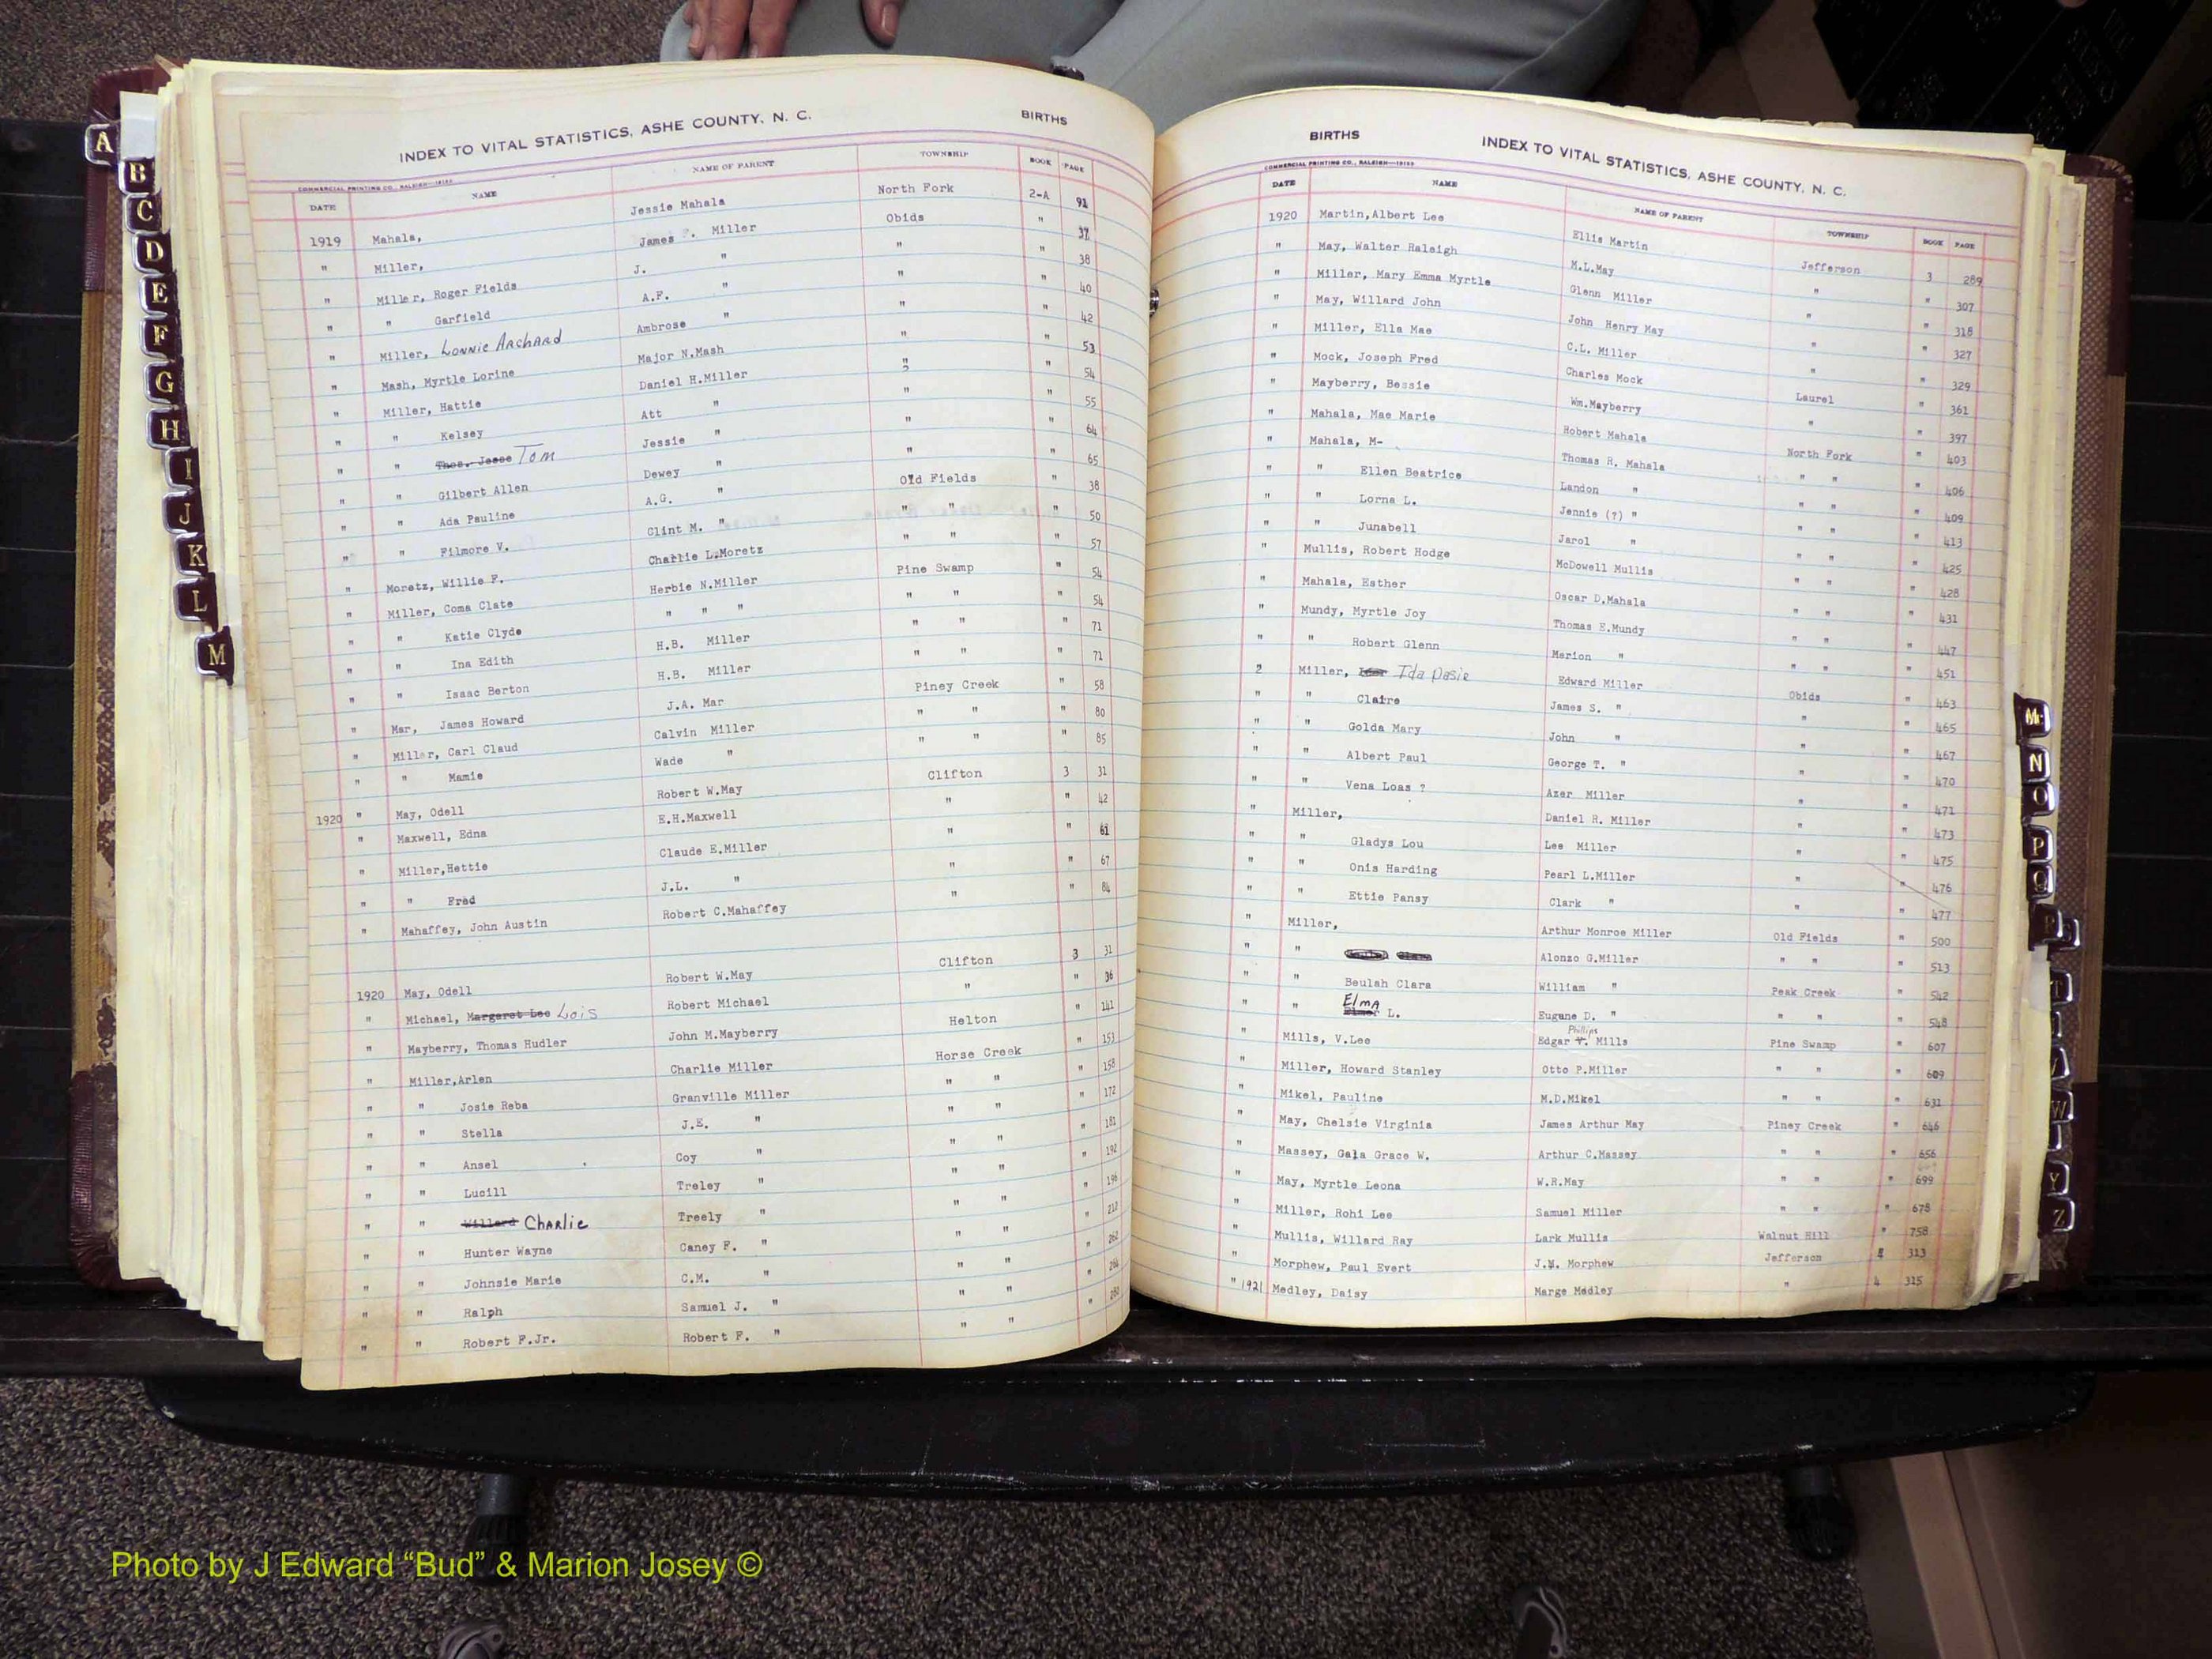 INDEX TO VITAL STATISTICS, ASHE COUNTY, N. C. BIRTHS
COMMERCIAL PRINTING CO., RALEIGH
DATE NAME NAME OF PARENT TOWNSHIP BOOK PAGE
1919 Mahala, Jessie Mahala North Fork 2-A 91
" Miller, James Miller Obids " 37
" Miller, Roger Fields J. " " " 38
" " Garfield A.F. " " " 40
" Miller, Lonnie Archard Ambrose " " " 42
" Mash, Myrtle Lorine Major N.Mash " " 53
" Miller, Hattie Daniel H.Miller " " 54
" " Kelsey Att " " " 55
" " Thos. Jesse Tom Jessie " " " 64
" " Gilbert Allen Dewey " " " 65
" " Ada Pauline A.G. " Old Fields " 38
" " Filmore V. Clint M. " " " " 50
" Moretz, Willie F. Charlie L.Moretz " " " 57
" Miller, Coma Clate Herbie N.Miller Pine Swamp " 54
" " Katie Clyde " " " " " " 54
" " Ina Edith H.B. Miller " " " 71
" " Isaac Berton H.B. Miller " " " 71
" Mar, James Howard J.A. Mar Piney Creek " 58
" Miller, Carl Claud Calvin Miller " " " 80
" " Mamie Wade " " " " 85
1920 " May, Odell Robert W.May Clifton 3 31
" Maxwell, Edna E.H.Maxwell " " 42
" Miller,Hettie Claude E.Miller " " 61
" " Fred J.L. " " " 67
" Mahaffey, John Austin Robert C.Mahaffey " " 84
1920 May, Odell Robert W.May Clifton 3 31
" Michael, Margaret Lee Lois Robert Michael " " 36
" Mayberry, Thomas Hudler John M.Mayberry Helton " 141
" Miller,Arlen Charlie Miller Horse Creek " 153
" " Josie Reba Granville Miller " " " 158
" " Stella J.E. " " " " 172
" " Ansel Coy " " " " 181
" " Lucill Treley " " " " 192
" " Willard Charlie Treely " " " " 196
" " Hunter Wayne Caney F. " " " " 212
" " Johnsie Marie C.M. " " " " 262
" " Ralph Samuel J. " " " "
" " Robert F.Jr. Robert F. " " " "
BIRTHS INDEX TO VITAL STATISTICS, ASHE COUNTY, N. C.
COMMERCIAL PRINTING CO., RALEIGH
DATE NAME NAME OF PARENT TOWNSHIP BOOK PAGE
1920 Martin,Albert Lee Ellis Martin Jefferson 3 289
" May, Walter Raleigh M.L.May " " 307
" Miller, Mary Emma Myrtle Glenn Miller " " 318
" May, Willard John John Henry May " " 327
" Miller, Ella Mae C.L. Miller " " 329
" Mock, Joseph Fred Charles Mock Laurel " 361
" Mayberry, Bessie Wm.Mayberry " " 397
" Mahala, Mae Marie Robert Mahala North Fork " 403
" Mahala, M- Thomas R. Mahala " " " 406
" " Ellen Beatrice Landon " " " " 409
" " Lorna L. Jennie (?) " " " " 413
" " Junabell Jarol " " " " 425
" Mullis, Robert Hodge McDowell Mullis " " " 428
" Mahala, Esther Oscar D.Mahala " " " 431
" Mundy, Myrtle Joy Thomas E.Mundy " " " 447
" " Robert Glenn Merion " " " " 451
2 Miller, Ida Dasie Edward Miller Obids " 463
" " Claire James S. " " " 465
" " Golda Mary John " " " 467
" " Albert Paul George T. " " " 470
" " Vena Loas ? Azer Miller " " 471
" Miller, Daniel R. Miller " " 473
" " Gladys Lou Lee Miller " " 475
" " Onis Harding Pearl L.Miller " " 476
" " Ettie Pansy Clark " " " 477
" Miller, Arthur Monroe Miller Old Fields " 500
" " Alonzo G.Miller " " " 513
" " Beulah Clara William " Peak Creek " 542
" " Elma L. Eugene D. " " " " 548
" Mills, V.Lee Edgar Phillips Mills Pine Swamp " 607
" Miller, Howard Stanley Otto P.Miller " " " 609
" Mikel, Pauline M.D.Mikel " " " 631
" May, Chelsie Virginia James Arthur May Piney Creek " 646
" Massey, Gala Grace W. Arthur C.Massey " " " 656
" May, Myrtle Leona W.R.May " " " 699
" Miller, Rohi Lee Samuel Miller " " " 678
" Mullis, Willard Ray Lark Mullis Walnut Hill " 758
" Morphew, Paul Evert J.M. Morphew Jefferson 4 313
" 1921 Medley, Daisy Marge Medley " 4 315
A
B
C
D
E
F
G
H
I
J
K
L
M
Mc
N
O
P
Q
R
T
W
Y
Z
Photo by J Edward “Bud” & Marion Josey ©